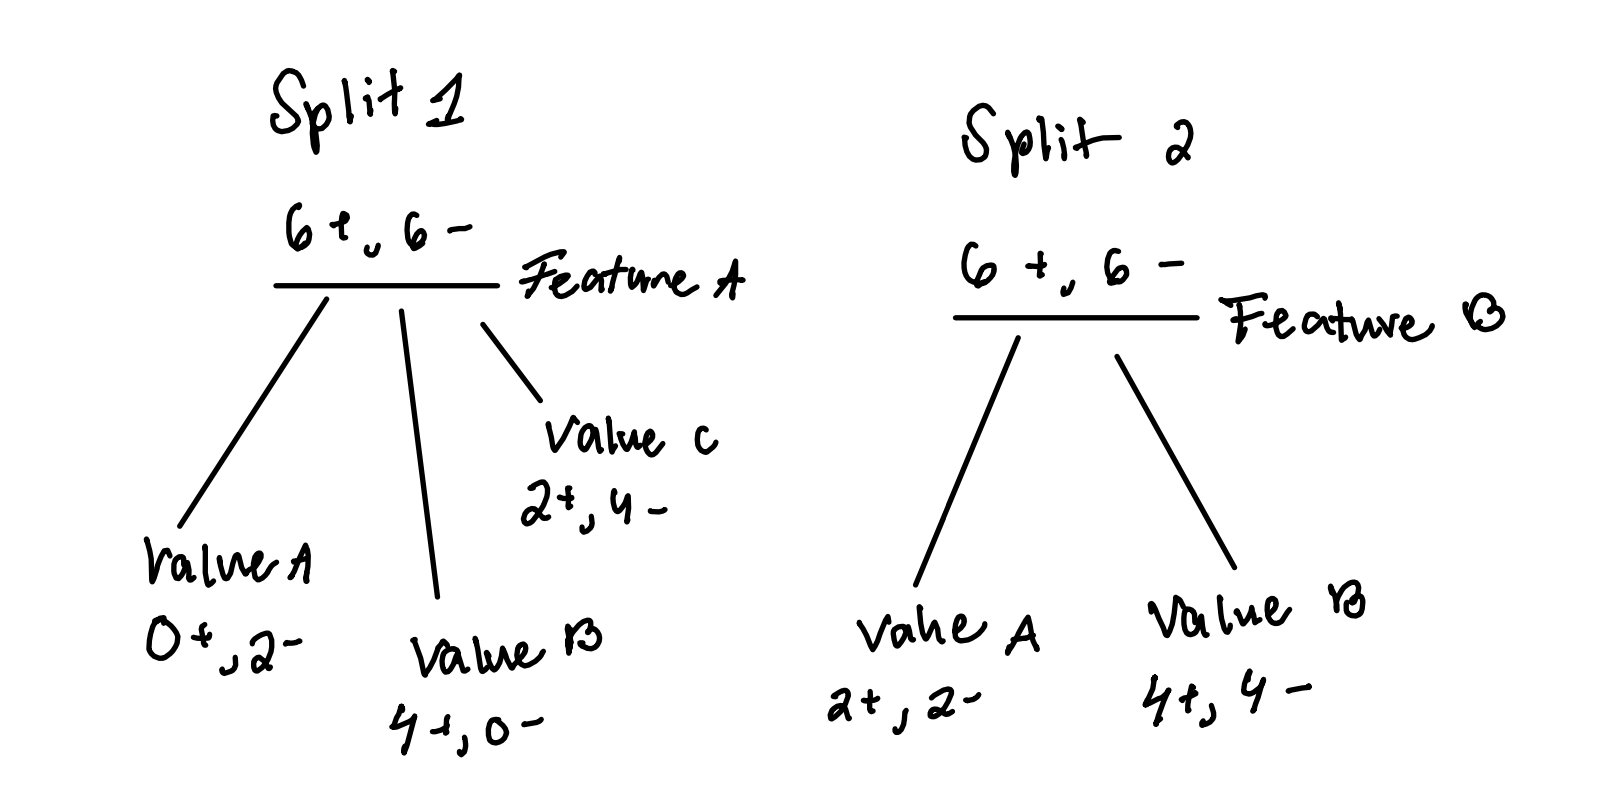 Split 1
6+, 6-
Feature A
Value C
2+, 4-
Value A
0+, 2-
Value B
4+, 0-
Split 2
6+, 6-
Feature B
Value A
2+, 2-
Value B
4+, 4-